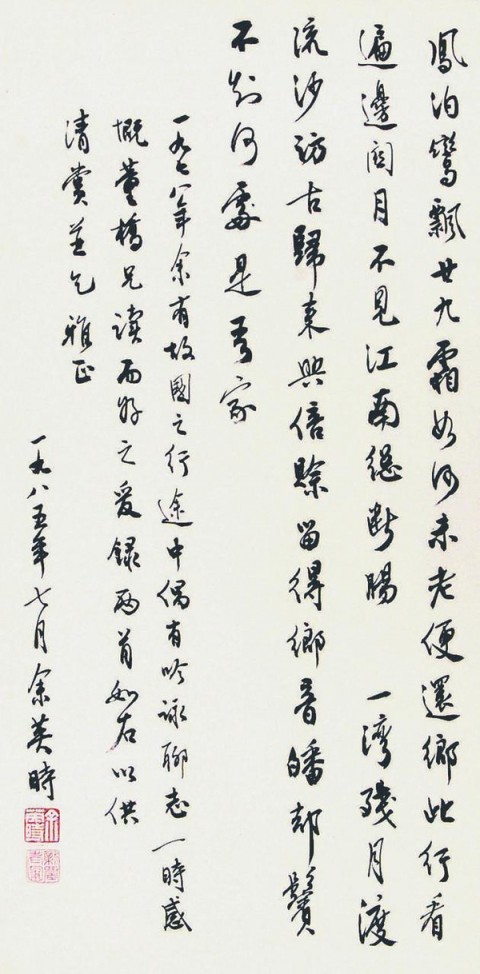 鳳泊鸞飄廿九霜如何未老便還鄉此行看
遍邊關月不見江南總斷腸　一灣殘月渡
流沙訪古歸來興倍賒留得鄉音皤却鬢
不知何處是吾家
一九七八年余有故國之行途中偶有吟詠聊志一時感
慨董橋兄讀而好之爰錄兩首如右以供
清賞並乞　雅正
一九八五年七月余英時